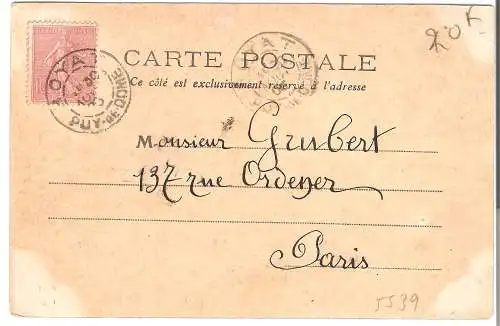 20 F
CARTE POSTALE
Ce côté est exclusivement réservé à l'adresse
ROYAT
PUY-DE-DOME
ROYAT
PUY-DE-DOME
Monsieur Grubert
137 rue Ordener
Paris
5539